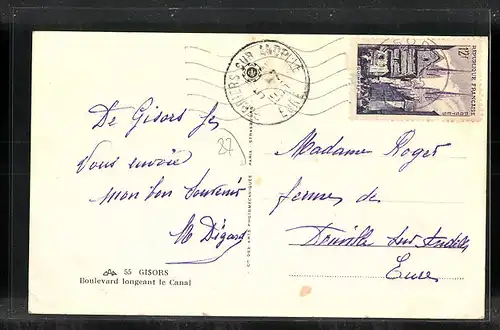 De Gisors je
Vous envoie
mon bon Souvenir
M Digard
27
55 GISORS
Boulevard longeant le Canal
CIE DES ARTS PHOTOMÉCANIQUES PARIS
SUR ANDELLE
EURE
12F
REPUBLIQUE FRANÇAISE
Madame Roger
fermes de
Douville sur Andelle
Eure